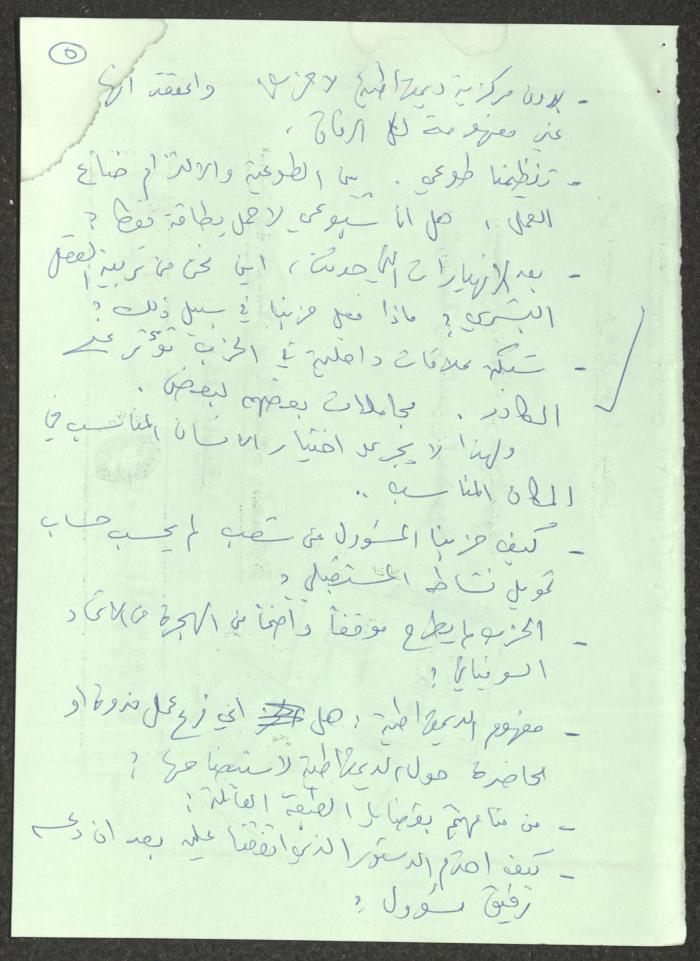 ٥
- بدون مركزية ديمقراطية لا حزب. واعتقد انها
غير مفهومة لكل الرفاق.
- تنظيمنا طوعي. بين الطوعية والالتزام ضاع
العمل. هل انا شيوعي لاحمل بطاقة فقط؟
- بعد الانهيارات التي حدثت، اين نحن من تربية العقل
البشري؟ ماذا فعل حزبنا في سبيل ذلك؟
- شبكة علاقات داخلية في الحزب تؤثر على
الكادر. مجاملات بعضهم لبعض.
ولهذا لا يجري اختيار الانسان المناسب في
المكان المناسب..
- كيف حزبنا المسؤول عن شعب لم يحسب حساب
تمويل نشاطه المستقبلي؟
- الحزب لم يطرح موقفاً واضحاً من الهجرة من الاتحاد
السوفياتي؟
- مفهوم الديمقراطية: هل اي فرع عمل ندوة او
محاضرة حول الديمقراطية لاستيضاحها؟
- من منا مهتم بقضايا الطبقة العاملة؟
- كيف احترم الدستور الذي اتفقنا عليه بعد ان
رفيق مسؤول؟